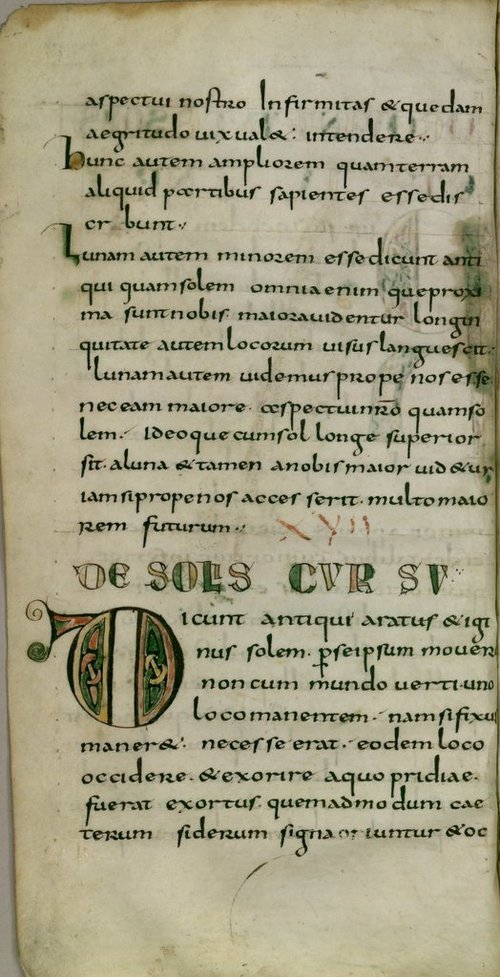 aspectui nostro Infirmitas & quedam
aegritudo uix ual&: intendere
hunc autem ampliorem quam terram
aliquid partibus sapientes esse dis
cr bunt
Lunam autem minorem esse dicunt anti
qui quam solem omnia enim que proxi
ma sunt nobis maiora uidentur longin
quitate autem locorum uisus languescit.
lunam autem uidemus prope nos esse
nec eam maiore aspectui nr̄o quam so
lem. Ideoque cum sol longe superior
sit. a luna & tamen a nobis maior uid&ur
iam si prope nos accesserit. multo maio
rem futurum
XVII
DE SOLIS CVRSV
Dicunt antiqui aratus & igi
nus solem. p̱ seipsum mouer
non cum mundo uerti. uno
loco manentem. nam si fixus
maner&. necesse erat. eodem loco
occidere. & exorire a quo pridiae.
fuerat exortus. quemadmodum cae
terum siderum signa iuntur & oc